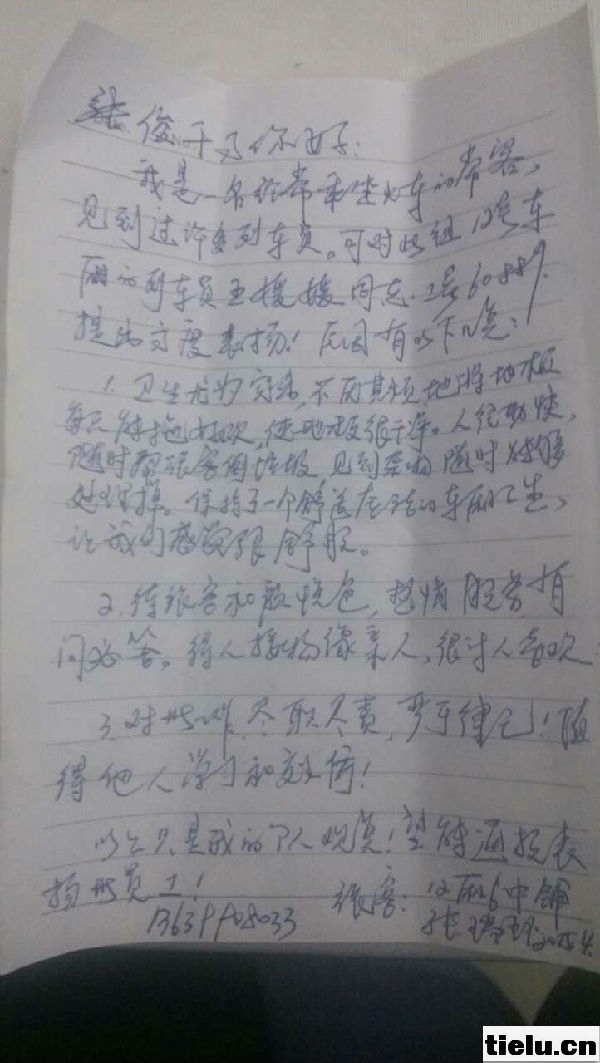 你好：
我是一名经常乘坐火车的常客，
见到过许多列车员。可对此组12号车
厢的列车员王媛媛同志.工号60889.
提出高度表扬！原因有以下几点：
1.卫生尤为突出，不厌其烦地将地板
每天使地板很干净。人经勤快，
随时帮旅客倒垃圾 见到随时能够
处理掉。保持了一个舒适的车厢卫生，
让我们感觉很舒服。
2.待旅客和颜悦色，热情服务有
问必答。待人接物像亲人，很讨人喜欢
3.对工作，尽职尽责，严于律己！值
得他人学习和
以上只是我的个人观点！望能通报表
扬此员工！ 旅客：12厢6中铺
tielu.cn